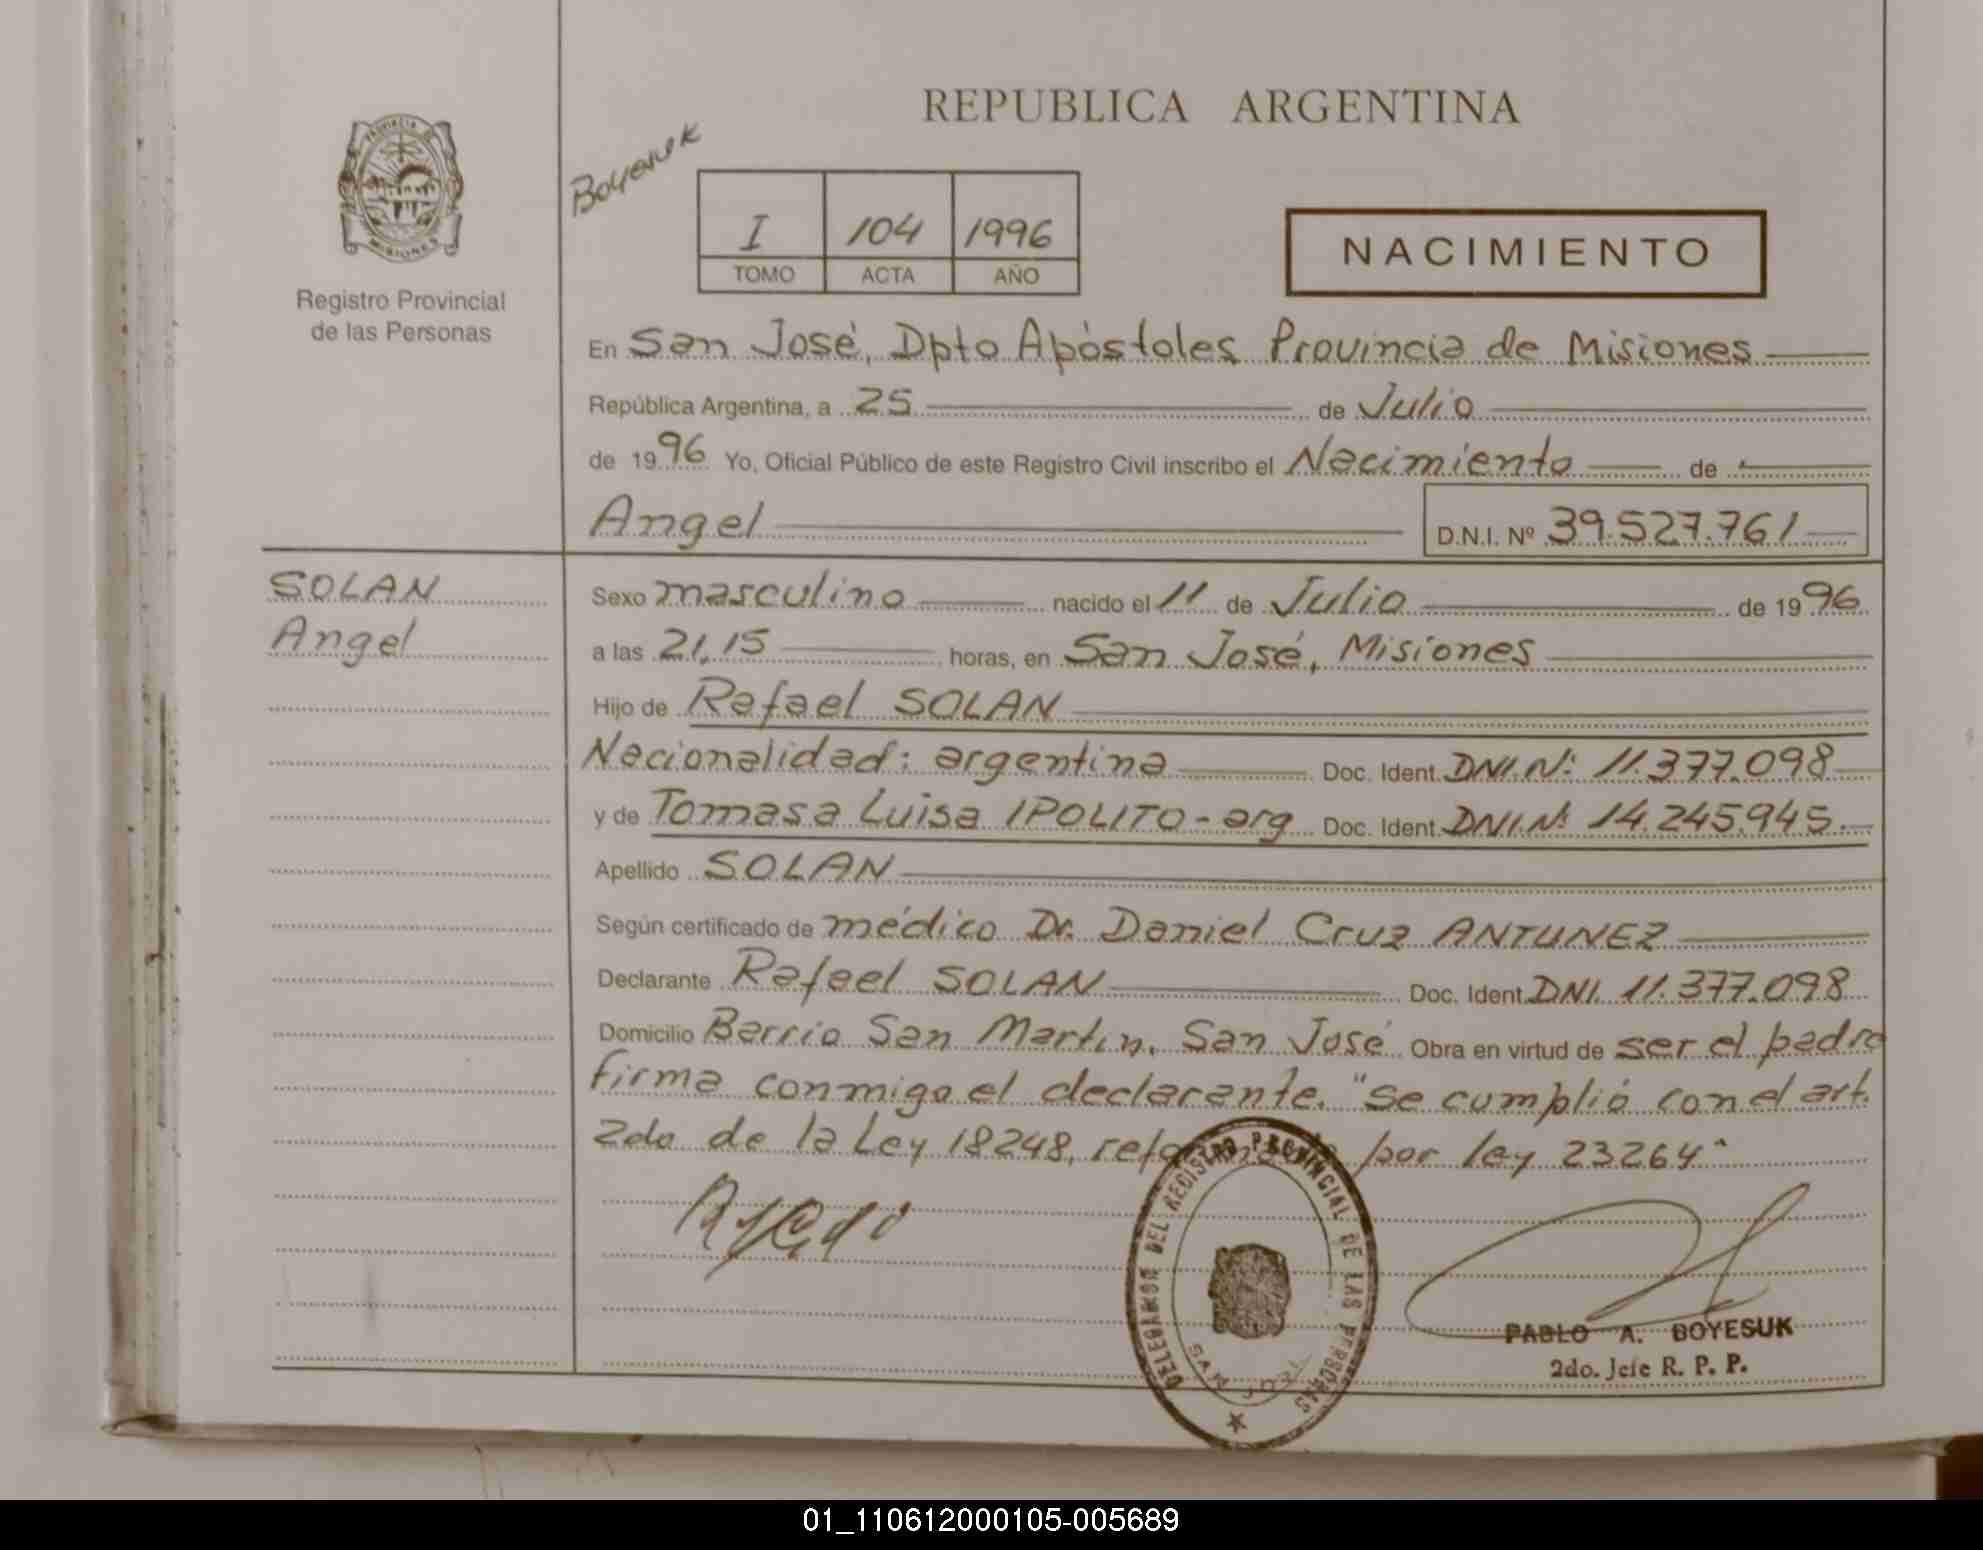 REPUBLICA ARGENTINA
PROVINCIA DE
MISIONES
Registro Provincial
de las Personas
Boyesuk
I 104 1996
TOMO ACTA AÑO
NACIMIENTO
En San José, Dpto Apóstoles Provincia de Misiones
República Argentina, a 25 de Julio
de 1996 Yo, Oficial Público de este Registro Civil inscribo el Nacimiento de
Angel D.N.I. Nº 39.527.761
SOLAN
Angel
Sexo masculino nacido el 11 de Julio de 1996
a las 21,15 horas, en San José, Misiones
Hijo de Rafael SOLAN
Nacionalidad: argentina Doc. Ident. DNI.N: 11.377.098
y de Tomasa Luisa IPOLITO - arg Doc. Ident. DNI.N: 14.245.945.
Apellido SOLAN
Según certificado de médico Dr. Daniel Cruz ANTUNEZ
Declarante Rafael SOLAN Doc. Ident. DNI. 11.377.098
Domicilio Barrio San Martín. San José Obra en virtud de ser el padre
firma conmigo el declarante. "Se cumplió con el art.
2do de la Ley 18248, reformado por ley 23264"
DELEGACION DEL REGISTRO PROVINCIAL DE LAS PERSONAS
SAN JOSE
PABLO A. BOYESUK
2do. Jefe R. P. P.
01_110612000105-005689